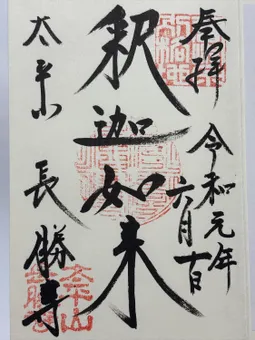 奉拝
令和元年
六月十日
釈迦如来
太平山
長勝寺
太平山
長勝寺